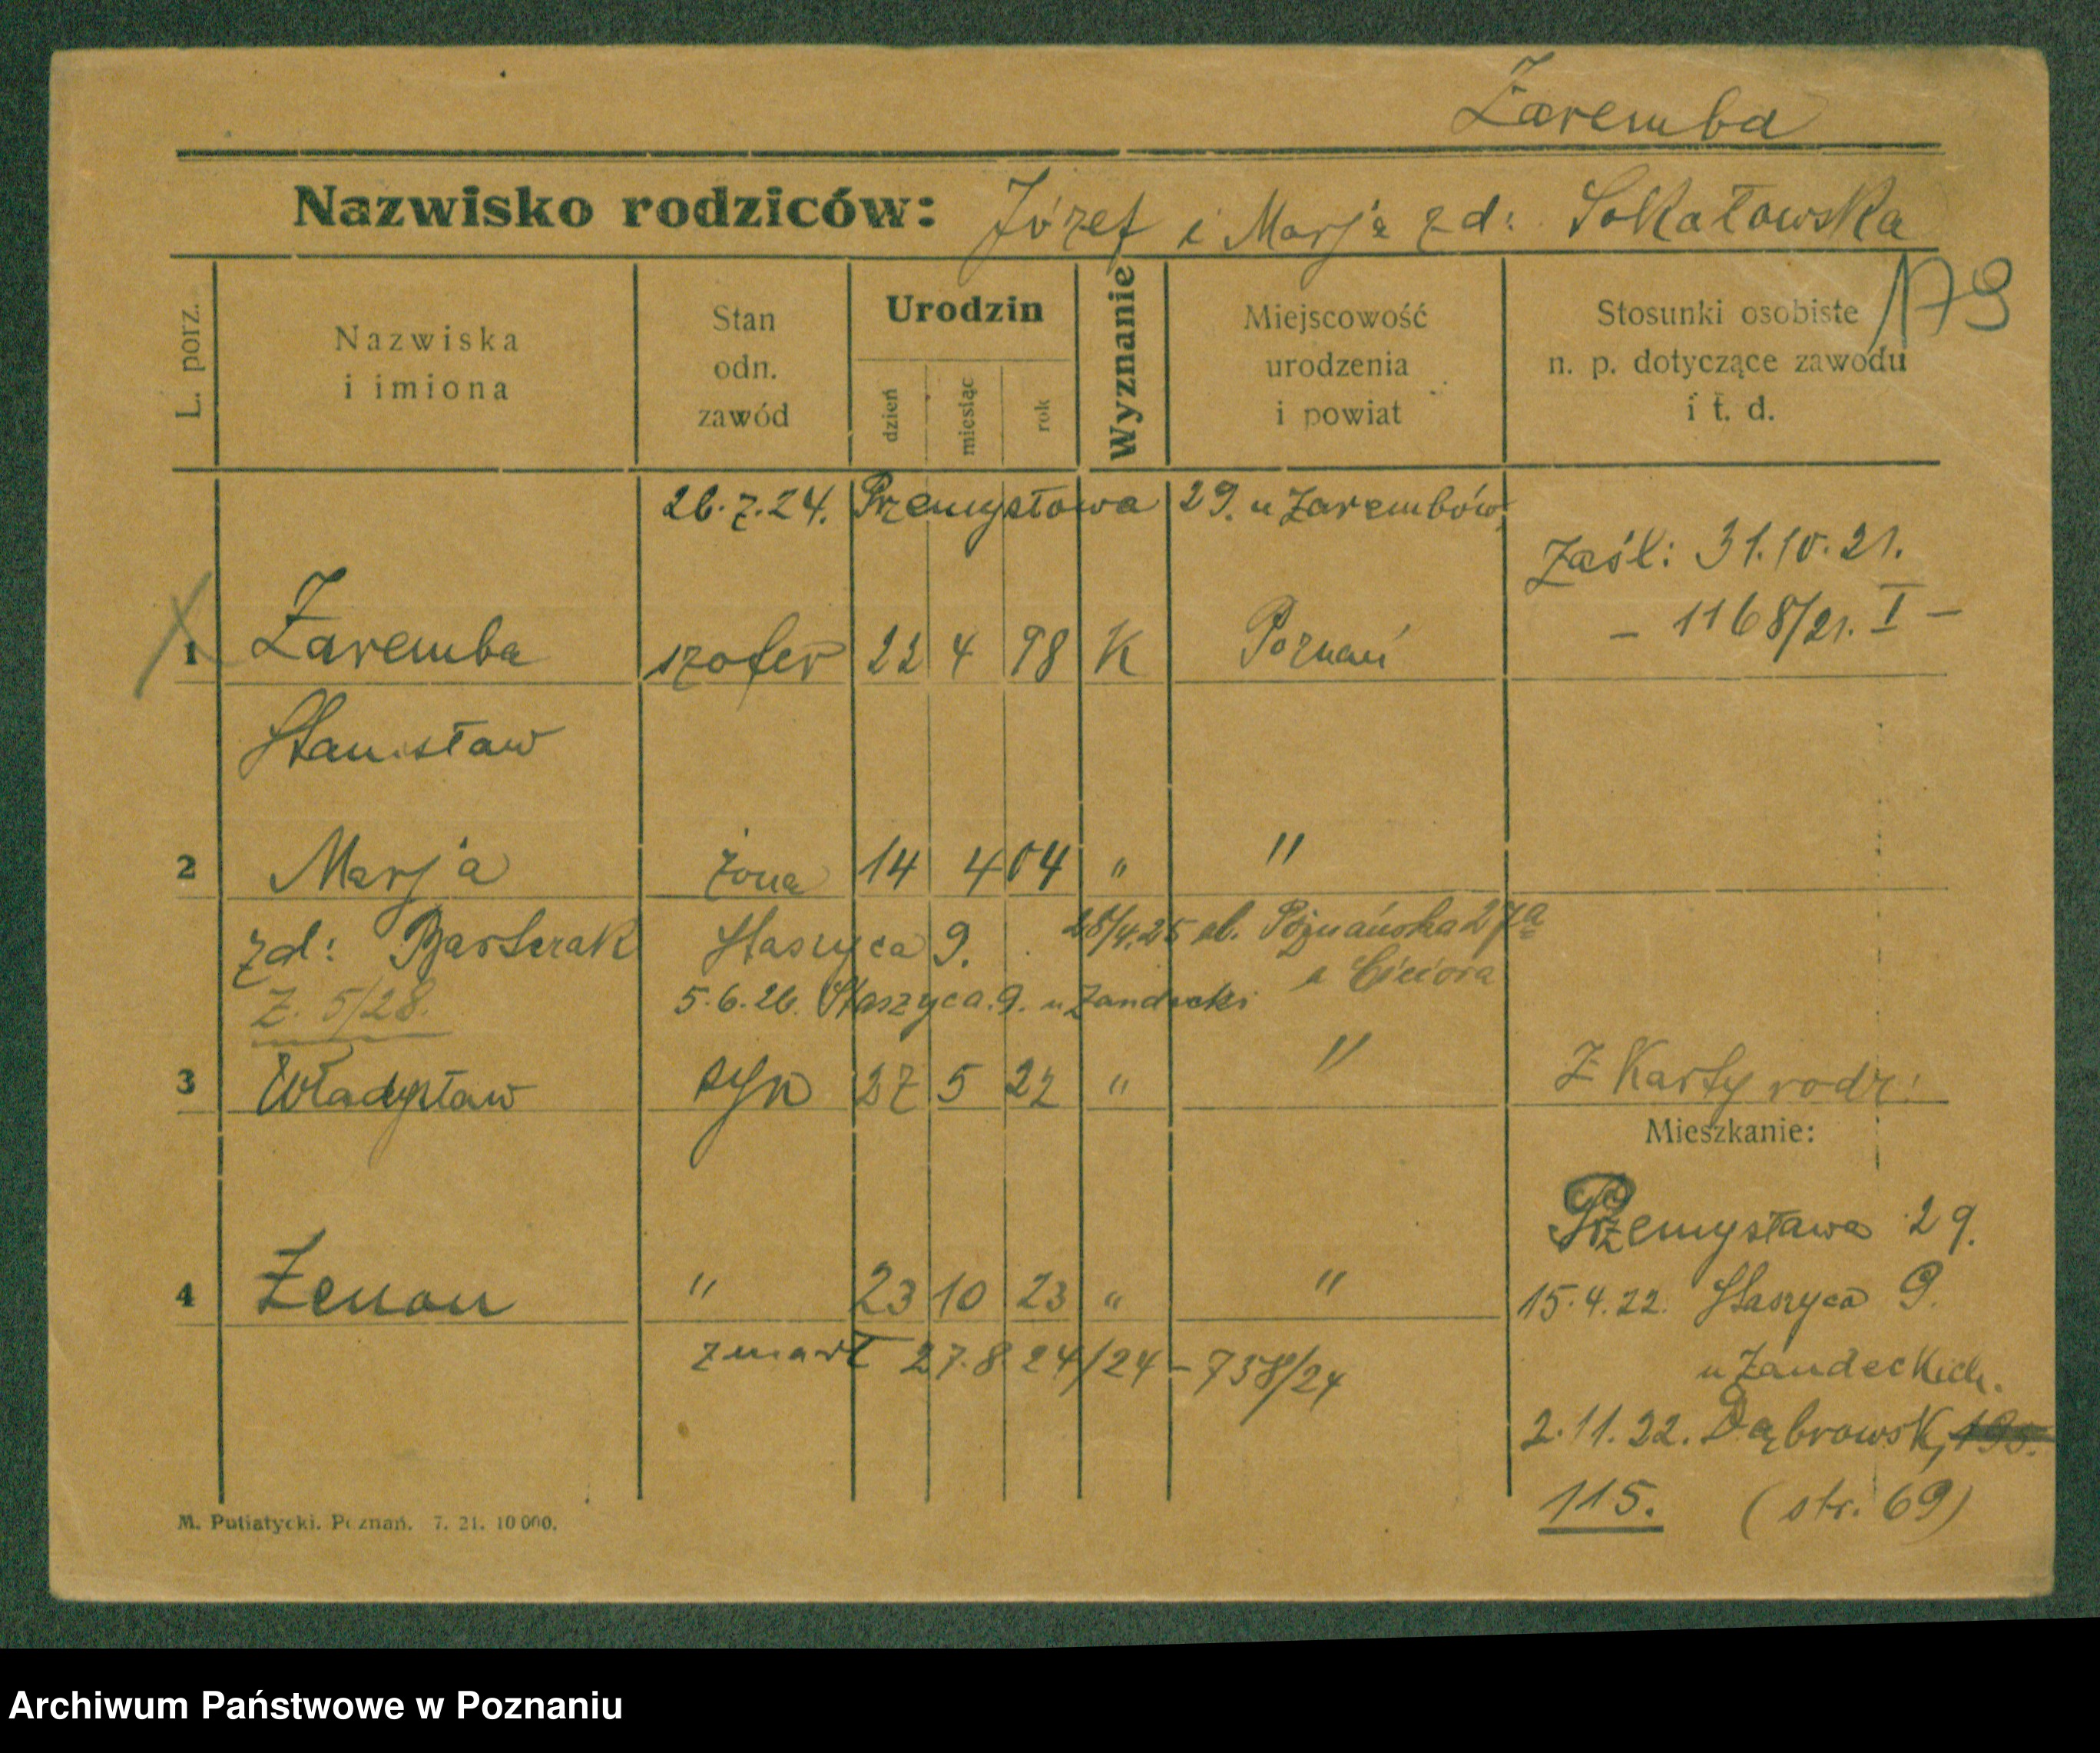 Zaremba
Nazwisko rodziców: Józef i Marja zd: Sokołowska
179
L. porz.
Nazwiska i imiona
Stan odn. zawód
Urodzin
dzień
miesiąc
rok
Wyznanie
Miejscowość urodzenia i powiat
Stosunki osobiste n. p. dotyczące zawodu i t. d.
26.7.24. Przemysłowa 29. u Zarembów.
Zaśl: 31.10.21.
- 1168/21. I -
1 Zaremba szofer 22 4 98 K Poznań
Stanisław
2 Marja żona 14 4 04 " "
zd: Staszyca 9. 28/4.25 ul. Poznańska 27a
u
Z. 5/28. 5.6.26. Staszyca. 9. u Zandecki
3 Władysław syn 27 5 22 " " Z Karty rodz:
Mieszkanie:
Przemysława 29.
4 Zenon " 23 10 23 " " 15.4.22. Staszyca 9.
zmarł 27.8.24/24 - 738/24
u Zandeckich.
2.11.22. Dąbrowsk, 195.
115. (str. 69)
M. Putiatycki. Poznań. 7. 21. 10000.
Archiwum Państwowe w Poznaniu